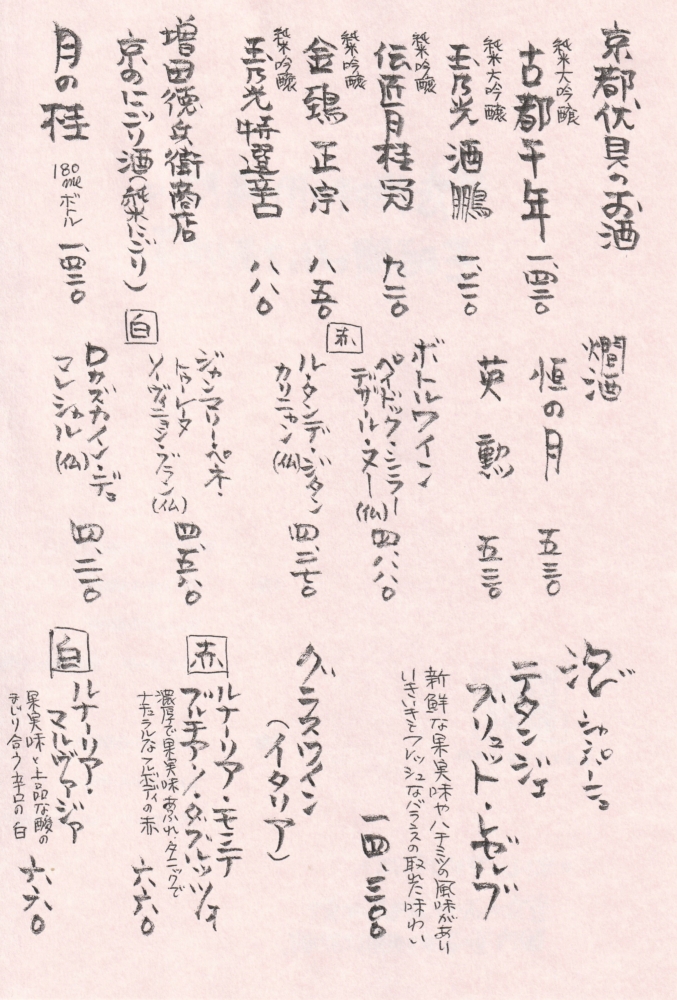 京都伏見のお酒
純米大吟醸
古都千年 一、四二〇
純米大吟醸
玉乃光 酒鵬 一、二一〇
純米吟醸
伝匠月桂冠 九二〇
純米吟醸
金鵄正宗 八五〇
純米吟醸
玉乃光特選辛口 八八〇
増田徳兵衛商店
京のにごり酒(純米にごり)
月の桂 180mlボトル 一、四二〇
燗酒
恒の月 五三〇
英勲 五三〇
ボトルワイン
赤
ペイドック・シラー
デザール・ヌー(仏) 四、八八〇
ル・タンデ・ジタン
カリニャン(仏) 四、二七〇
白
ジャンマリー・ペネ・
トゥレータ
ソーヴィニヨン・ブラン(仏) 四、五八〇
ロカズカイン・デュ
マレシャル(仏) 四、二一〇
泡 シャンパーニュ
テタンジェ
ブリュット・レゼルブ
新鮮な果実味やハチミツの風味があり
いきいきとフレッシュなバランスの取れた味わい
一四、三〇〇
グラスワイン
(イタリア)
赤
ルナーリア・モンテ
プルチアーノ・ダブルッツォ
濃厚で果実味あふれ、タニックで
ナチュラルなフルボディの赤
六六〇
白
ルナーリア・
マルヴァジア
果実味と上品な酸の
まじり合う辛口の白
六六〇